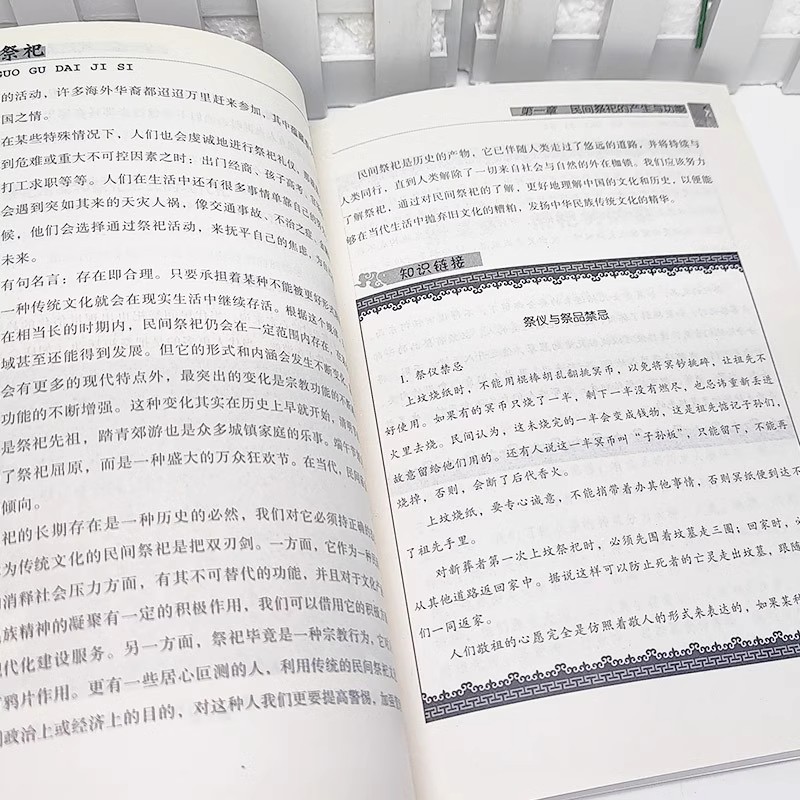 祭祀
GUO GU DAI JI SI
的活动，许多海外华裔都迢迢万里赶来参加，其中蕴
国之情。
在某些特殊情况下，人们也会虔诚地进行祭祀礼仪，
到危难或重大不可控因素之时：出门经商、孩子高考、
打工求职等等。人们在生活中还有很多事情单靠自己的
会遇到突如其来的天灾人祸，像交通事故、不治之症、
候，他们会选择通过祭祀活动，来抚平自己的焦虑，为
未来。
有句名言：存在即合理。只要承担着某种不能被更好形
一种传统文化就会在现实生活中继续存活。根据这个
在相当长的时期内，民间祭祀仍会在一定范围内存在，
域甚至还能得到发展。但它的形式和内涵会发生不断变
会有更多的现代特点外，最突出的变化是宗教功能的不断
功能的不断增强。这种变化其实在历史上早就开始，清明
是祭祀先祖，踏青郊游也是众多城镇家庭的乐事。端午
了祭祀屈原，而是一种盛大的万众狂欢节。在当代，民间
倾向。
祀的长期存在是一种历史的必然，我们对它必须持正确的
为传统文化的民间祭祀是把双刃剑。一方面，它作为一种
消释社会压力方面，有其不可替代的功能，并且对于文化
族精神的凝聚有一定的积极作用，我们可以借用它的积极
代化建设服务。另一方面，祭祀毕竟是一种宗教行为，它
鸦片作用。更有一些居心叵测的人，利用传统的民间祭祀
政治上或经济上的目的，对这种人我们更要提高警惕，加
第一章 民间祭祀的产生与功能
民间祭祀是历史的产物，它已伴随人类走过了悠远的道路，并将持续与
人类同行，直到人类解除了一切来自社会与自然的外在枷锁。我们应该努力
了解祭祀，通过对民间祭祀的了解，更好地理解中国的文化和历史，以便能
够在当代生活中抛弃旧文化的糟粕，发扬中华民族传统文化的精华。
知识链接
祭仪与祭品禁忌
1. 祭仪禁忌
上坟烧纸时，不能用棍棒胡乱翻挑冥币，以免将冥钞挑碎，让祖先不
好使用。如果有的冥币只烧了一半，剩下一半没有燃尽，也忌讳重新丢进
火里去烧。民间认为，这未烧完的一半会变成钱物，这是祖先惦记子孙们，
故意留给他们用的。还有人说这一半冥币叫“子孙板”，只能留下，不能再
烧掉，否则，会断了后代香火。
上坟烧纸，要专心诚意，不能捎带着办其他事情，否则冥纸便到达不
了祖先手里。
对新葬者第一次上坟祭祀时，必须先围着坟墓走三圈；回家时，必
从其他道路返回家中。据说这样可以防止死者的亡灵走出坟墓，跟随
们一同返家。
人们敬祖的心愿完全是仿照着敬人的形式来表达的，如果某种